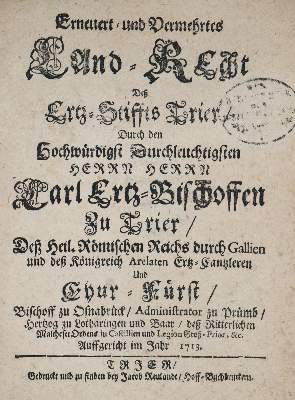 Erneuert- und Vermehrtes
Land-Recht
Deß
Ertz-Stiffts Trier/
Durch den
Hochwürdigst Durchleuchtigsten
HERRN HERRN
Carl Ertz-Bischoffen
Zu Trier/
Deß Heil. Römischen Reichs durch Gallien
und deß Königreich Arelaten Ertz-Cantzleren
Und
Chur-Fürst/
Bischoff zu Osnabrück/ Administrator zu Prümb/
Hertzog zu Lotharingen und Baar/ deß Ritterlichen
Maltheser Ordens in Castillien und Legion Groß-Prior, &c.
Auffgericht im Jahr 1713.
TRIER/
Gedruckt und zu finden bey Jacob Reulandt/ Hoff-Buchtruckern.